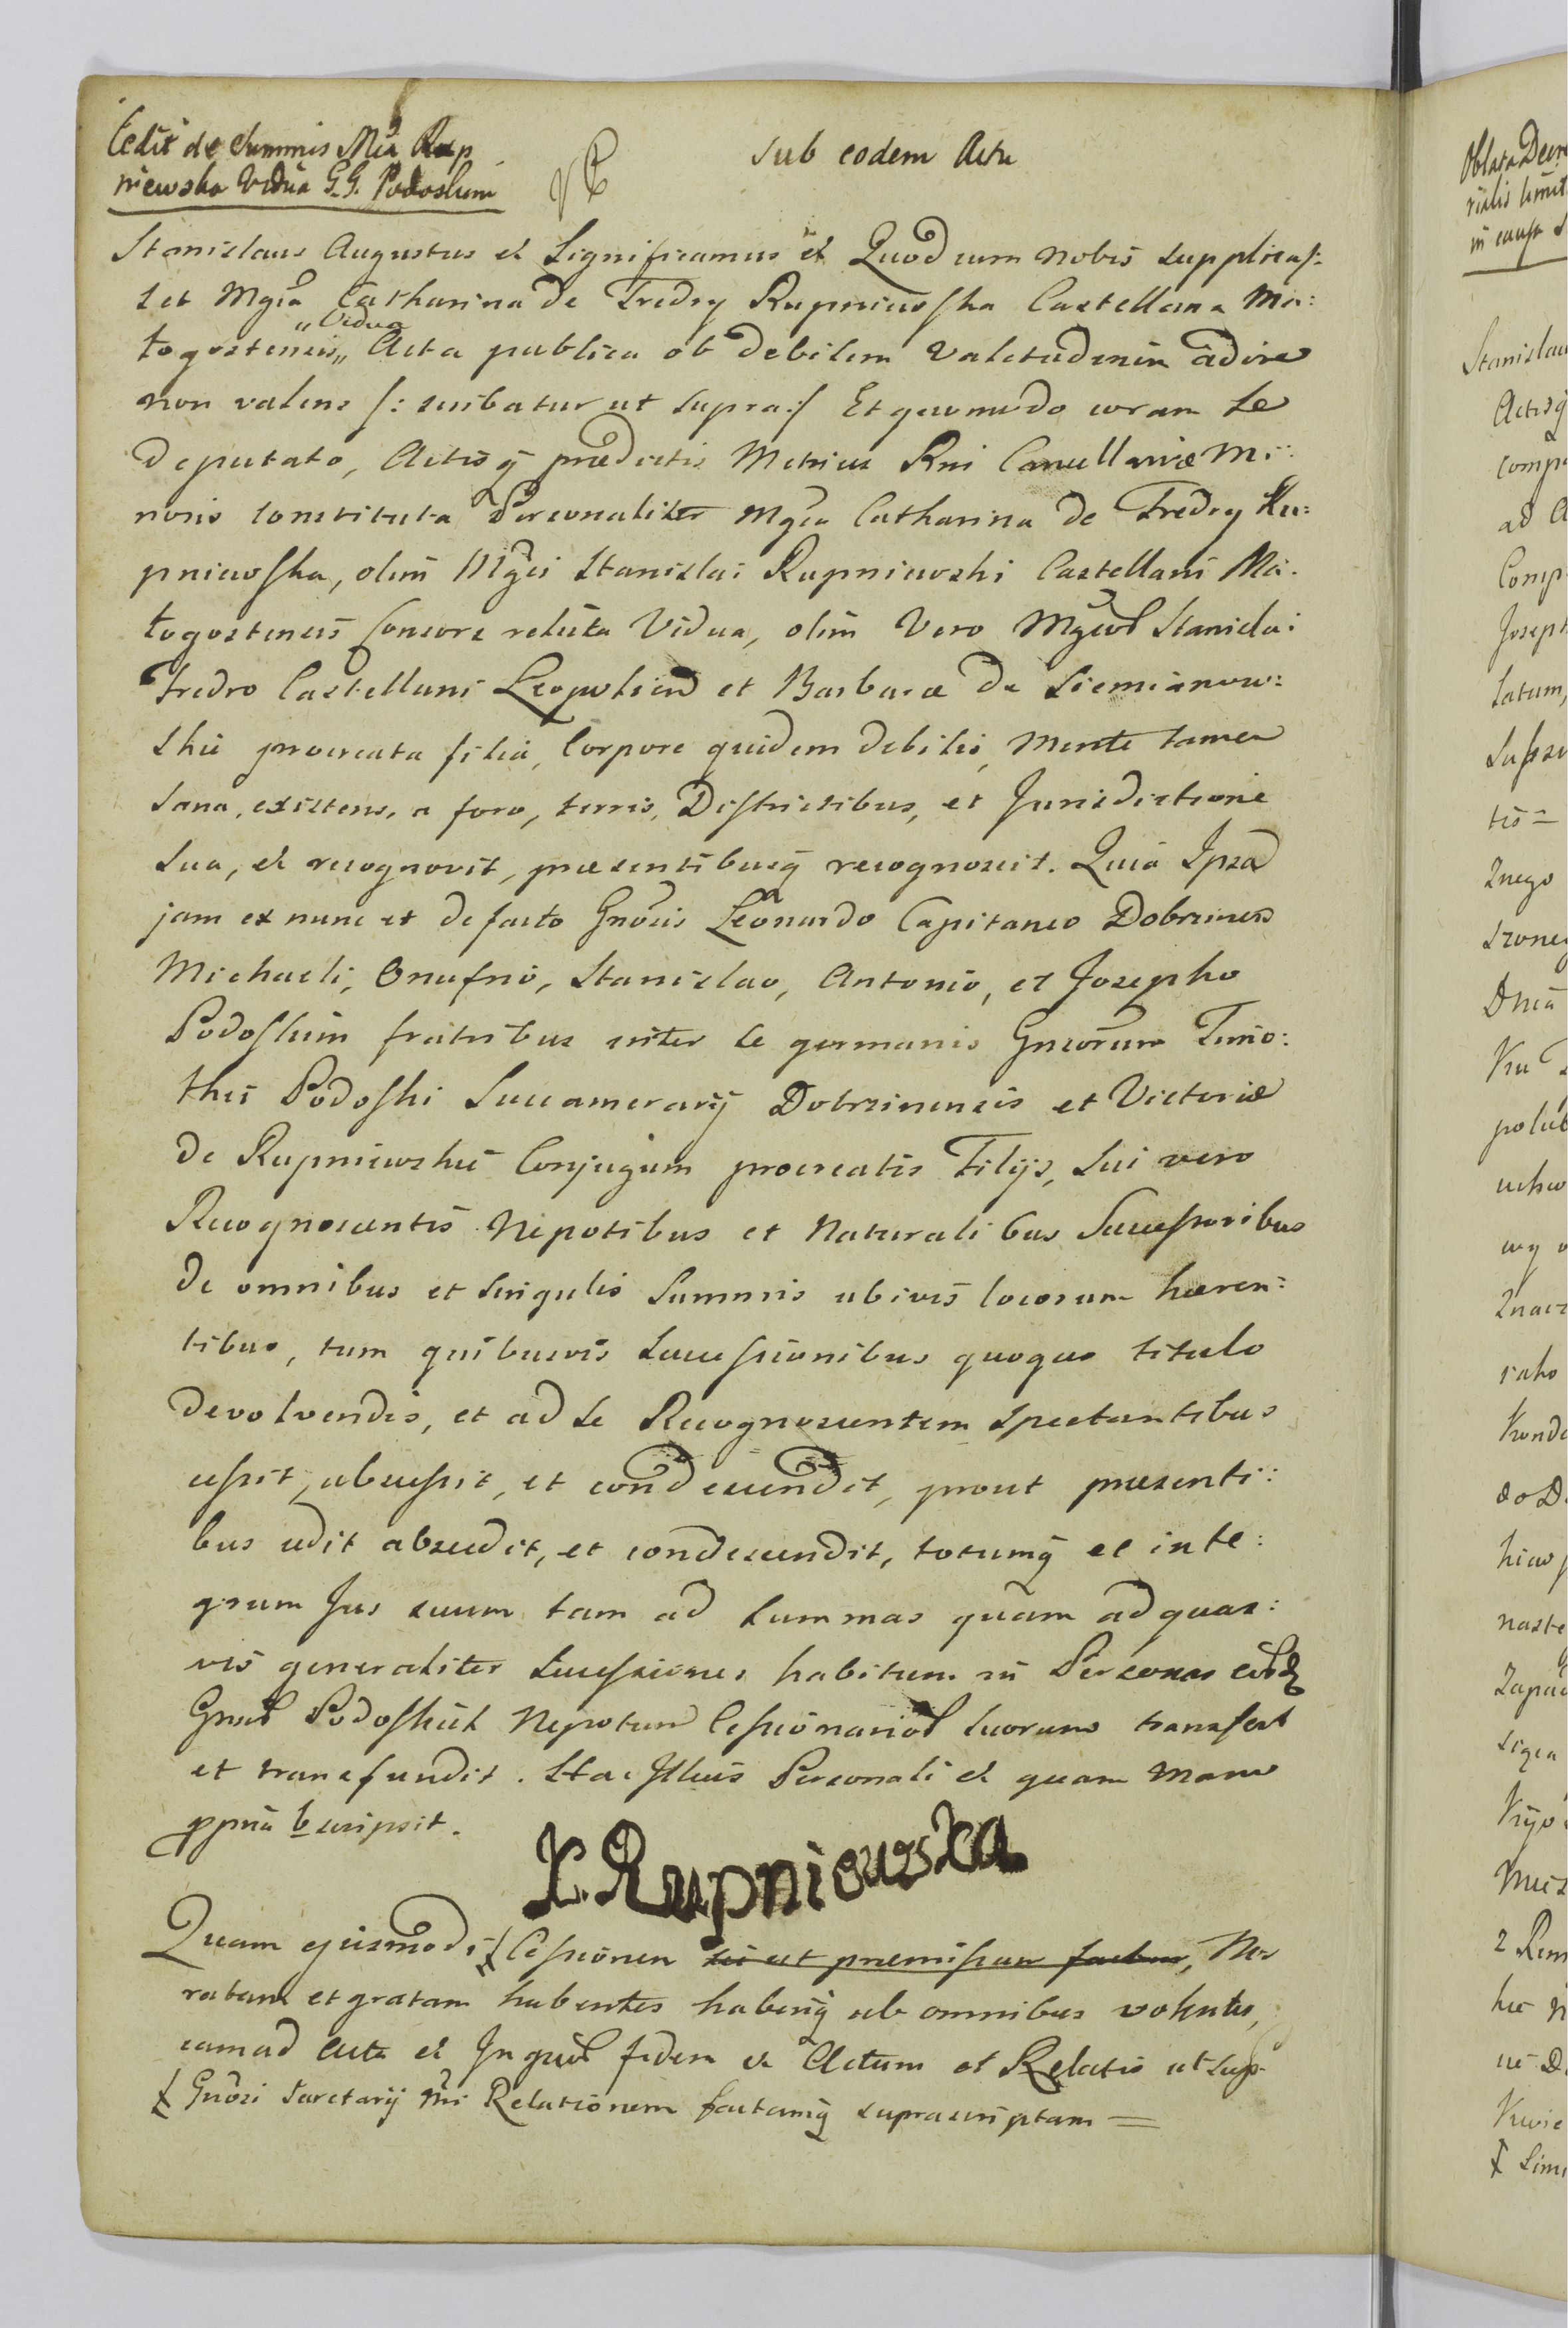 Cedit de Summis Mca Rup
niewska Vidua G.G. Podoskim
Sub eodem Actu
Stanislaus Augustus et Significamus et Quod cum nobis supplicas:
set Mgca Catharina de Fredry Rupniewska Castellana Ma:
„Vidua
łogostensis„ Acta publica ob debilem valetudinem adire
non valens /: scribatur ut supra :/ Et quomodo coram Se
deputato, Actisq prædictis Metrices Rni Cancellariæ Mi:
noris constituta Personaliter Mgca Catharina de Fredry Ru:
pniewska, olim Mgci Stanislai Rupniewski Castellani Ma:
łogostensis Consors relicta Vidua, olim Vero Mgcor Stanislai
Fredro Castellani Leopolien et Barbaræ de Siemianow:
skie procreata filia, Corpore quidem debilis, Mente tamen
Sana, existens, a foro, terris, Districtibus, et Jurisdictione
Sua, et recognovit, præsentibusq recognoscit. Quia Ipsa
jam ex nunc et de facto Gnosis Leonardo Capitaneo Dobrzinen
Michaeli, Onufrio, Stanislao, Antonio, et Josepho
Podoskim fratribus inter se germanis Gnsorum Timo:
thei Podoski Succamerarij Dobrzinensis et Victoriæ
de Rupniewskie Conjugum procreatis Filijs, Sui vero
Recognoscentis Nepotibus et Naturalibus Successoribus
de omnibus et singulis Summis ubivis locorum hæren:
tibus, tum quibusvis Successionibus quoquo titulo
devolvendis, et ad se Recognoscentem spectantibus
cessit, abcessit, et condescendit, prout præsenti:
bus cedit abscedit, et condescendit, totumq et inte:
grum Jus suum tam ad Summas quam ad quas:
vis generaliter Successiones habitum in Personas eord
Gnsor Podoskich Nepotum Cessionarior suorum transfert
et transfundit. Stae Illius Personali et quam Manu
ppria bscripsit.
K. Rupniewska
Quam ejusmodi Cessionem sic ut præmissum factam, Nos
ratam et gratam habentes haberiq ab omnibus volentes,
eam ad Acta et In quor fidem et Actum et Relatio ut sup
Gnosi Sacretarij Nri Relationem factamq suprascriptam =
Oblata Decre
Stanislau
Actisq
comp
ad A
Comp
Joseph
latum,
tis =
Znego
polub
uchw
wy
rako
do D
naste
Zapad
2 Rem